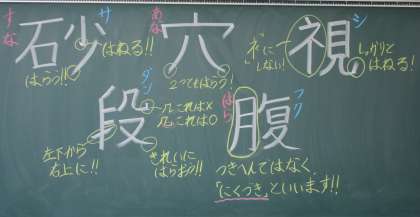 すな
サ
砂
はねる!!
はらう!!
あな
穴
2つともはらう!
シ
視
ネに
しない!
しっかりと
はねる!
ダン
段
几これは×
几これは○
左下から
右上に!!
きれいに
はらおう!!
はら
フク
腹
つきへんではなく
「にくづき」といいます!!